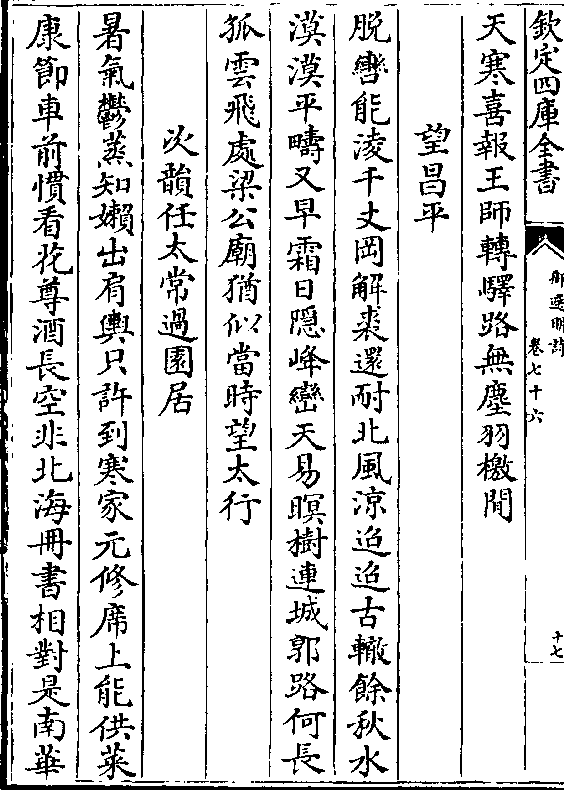 欽定四庫全書
御選明詩
卷七十六
十七
天寒喜報王師轉驛路無塵羽檄閒
望昌平
脫巒能淩千丈岡解裘還耐北風涼迢迢古轍餘秋水
漠漠平疇又早霜日隱峰巒天易暝樹連城郭路何長
狐雲飛處梁公廟猶似當時望太行
次韻任太常過園居
暑氣鬱蒸知嬾出肩輿只許到寒家元修席上能供菜
康節車前慣看花尊酒長空非北海冊書相對是南華